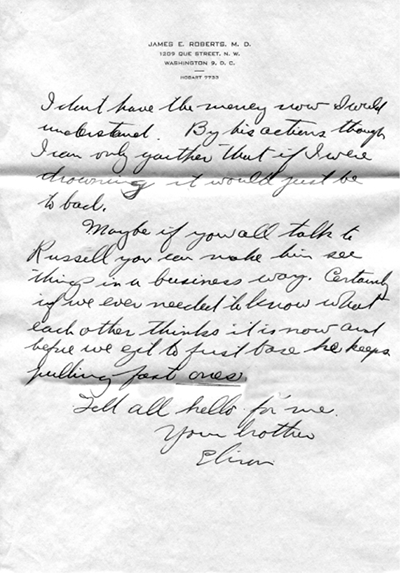 JAMES E. ROBERTS, M. D.
1209 QUE STREET, N. W.
WASHINGTON 9, D. C.
HOBART 7732
I dont have the money now I would
understand. By his actions though
I can only gather that if I were
drowning it would just be
to bad.
Maybe if you all talk to
Russell you can make him see
things in a business way. Certainly
if we ever needed to know what
each other thinks it is now and
before we get to first base he keeps
pulling fast ones.
Tell all hello for me.
Your brother